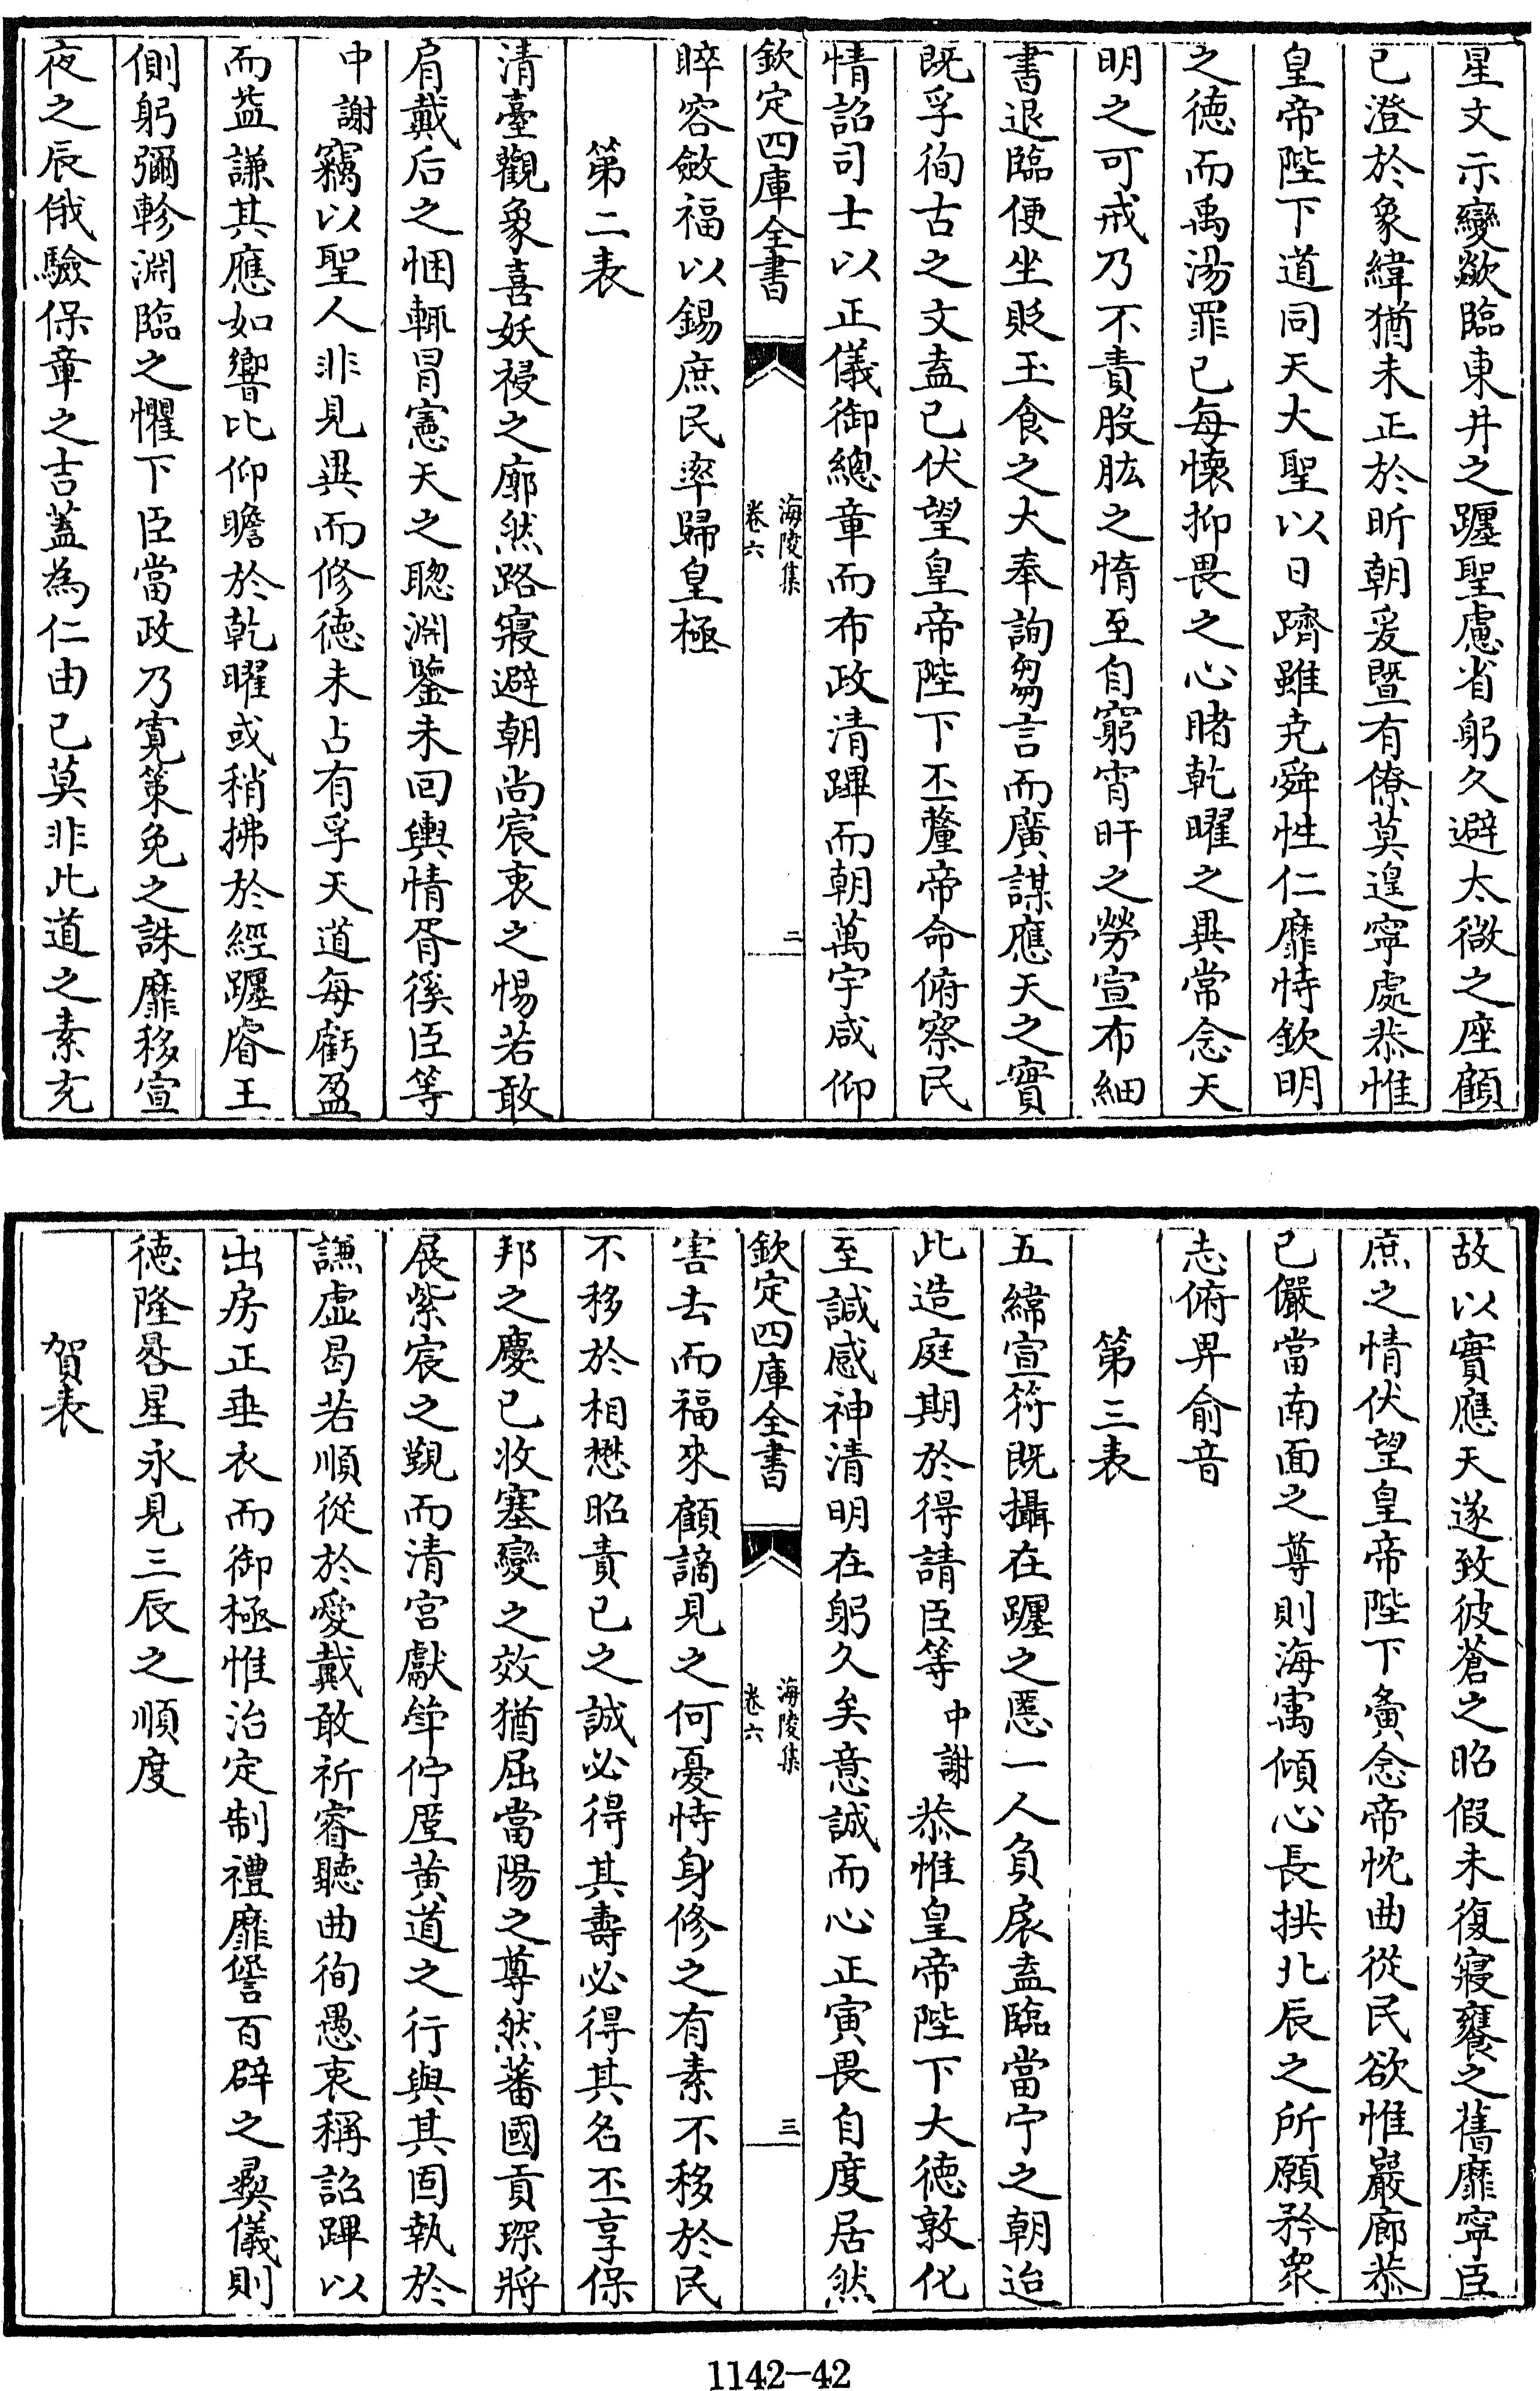 星文示變歘臨東井之躔聖慮省躬久避太微之座顧
已澄於象緯猶未正於昕朝爰暨有僚莫遑寧處恭惟
皇帝陛下道同天大聖以日躋雖克舜性仁靡恃欽明
之徳而禹湯罪已每懷抑畏之心睹乾曜之異常念天
明之可戒乃不責股肱之惰至自窮宵旰之勞宣布細
書退臨便坐貶玉食之大奉詢芻言而廣謀應天之實
既孚徇古之文盍已伏望皇帝陛下丕釐帝命俯察民
情詔司士以正儀御總章而布政清蹕而朝萬宇咸仰
欽定四庫全書
海陵集
卷六
二
睟容斂福以錫庶民率歸皇極
第二表
清臺觀象喜妖祲之廓然路寢避朝尚宸衷之惕若敢
肩戴后之悃輒冒憲天之聰淵鑒未回輿情胥徯臣等
中謝竊以聖人非見異而修徳未占有孚天道每虧盈
而益謙其應如響比仰瞻於乾曜或稍拂於經躔睿王
側躬彌軫淵臨之懼下臣當政乃寛策免之誅靡移宣
夜之辰俄驗保章之吉蓋為仁由已莫非此道之素充
故以實應天遂致彼蒼之昭假未復寢饔之舊靡寧臣
庶之情伏望皇帝陛下夤念帝忱曲從民欲惟巖廊恭
已儼當南面之尊則海㝢傾心長拱北辰之所願矜衆
志俯畀俞音
第三表
五緯宣符既攝在躔之慝一人負扆盍臨當宁之朝迨
此造庭期於得請臣等中謝恭惟皇帝陛下大徳敦化
至諴感神清明在躬久矣意誠而心正寅畏自度居然
欽定四庫全書
海陵集
卷六
三
害去而福來顧謫見之何憂恃身修之有素不移於民
不移於相懋昭責已之誠必得其壽必得其名丕享保
邦之慶已收塞變之效猶屈當陽之尊然蕃國貢琛將
展紫宸之覲而清宫獻斚佇厪黄道之行與其固執於
謙虚曷若順從於愛戴敢祈睿聽曲徇愚衷稱詔蹕以
出房正垂衣而御極惟治定制禮靡諐百辟之彛儀則
徳隆晷星永見三辰之順度
賀表
1142-42